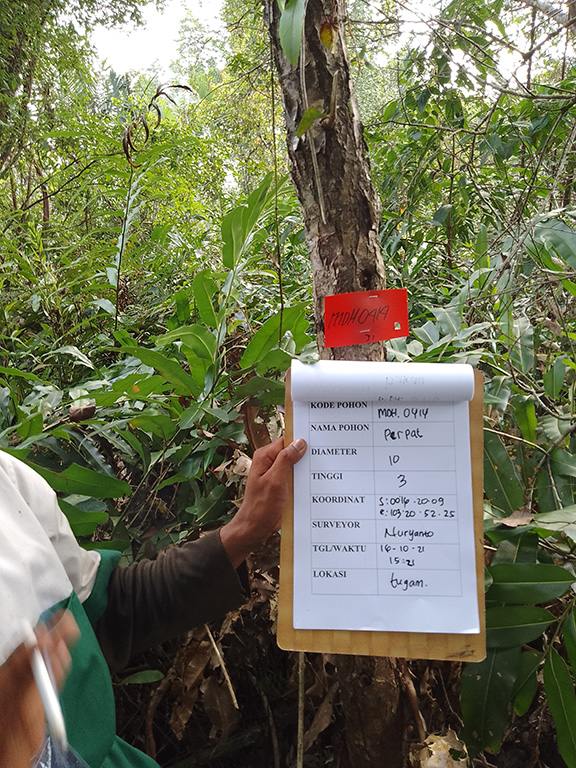 MDH.0414
KODE POHON MDH. 0414
NAMA POHON perpat
DIAMETER 10
TINGGI 3
KOORDINAT S: 0016-20-09
e: 103-20-52-25
SURVEYOR Nuryanto
TGL/WAKTU 16-10-21
15:21
LOKASI tugam.